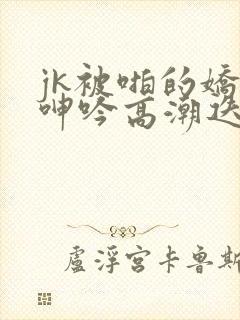 jk被啪的嬌
呻吟高潮迭
盧浮宮卡魯斯